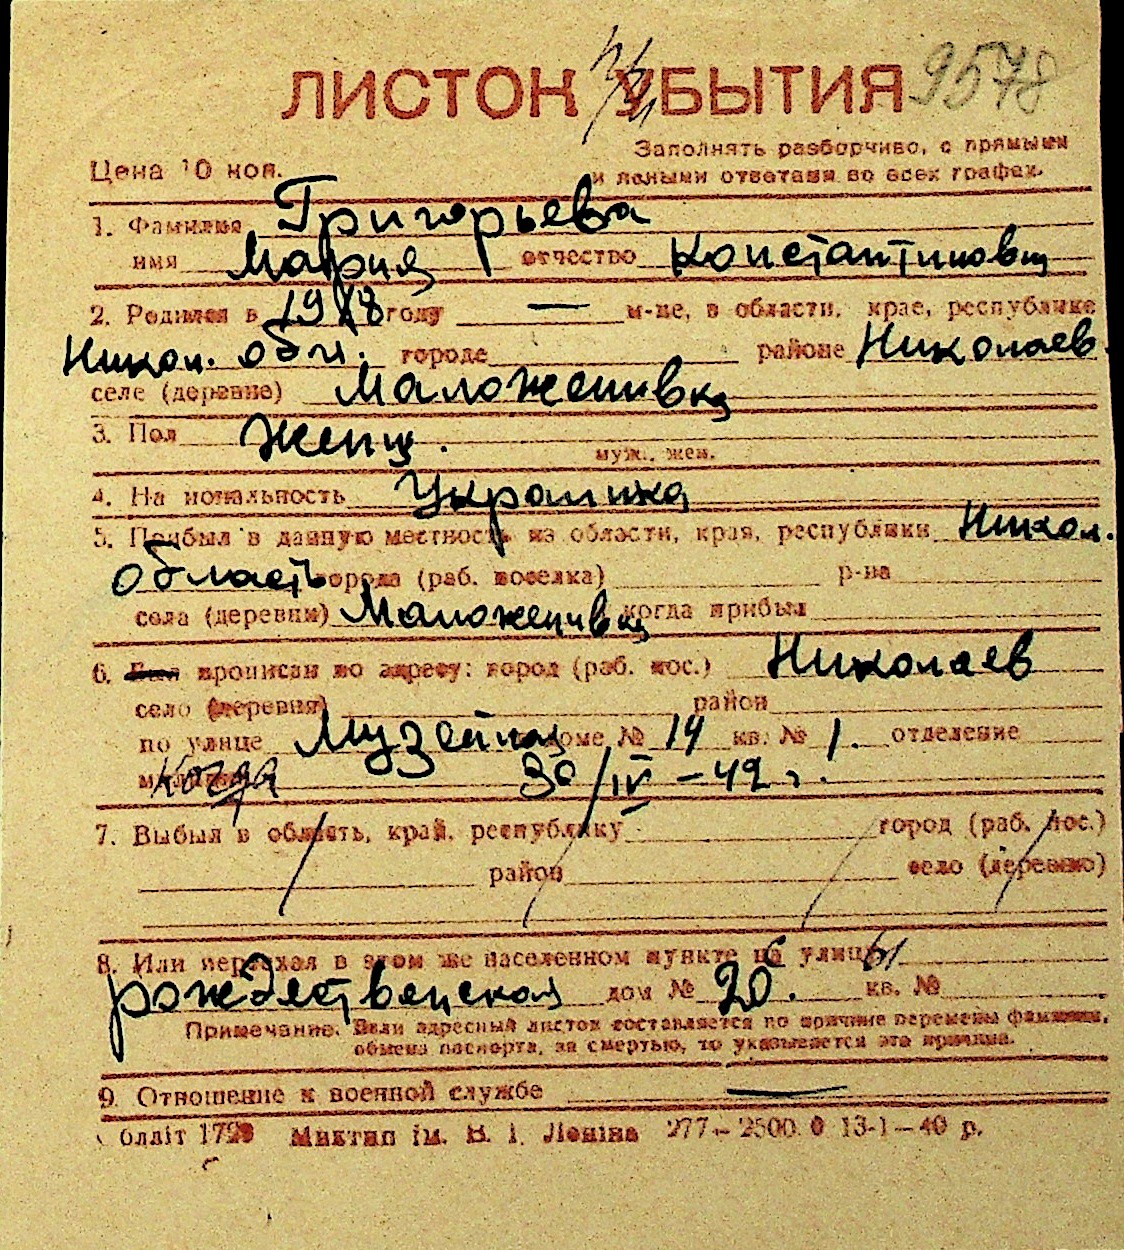 ЛИСТОК УБЫТИЯ 9578
Заполнять разборчиво, с прямыми
Цена 10 коп. и ясными ответами во всех графах.
1. Фамилия Григорьева
имя Мария отчество Константиновна
2. Родился в 1918 году — м-це, в области, крае, республике
Никол. обл. городе районе Николаев.
селе (деревне) Маложенивка
3. Пол Женщ.
муж., жен.
4. Национальность Украинка
5. Прибыл в данную местность из области, края, республики Никол.
область города (раб. поселка) р-на
села (деревни) Маложенивка когда прибыл
6. Был прописан по адресу: город (раб. пос.) Николаев
село (деревня) район
по улице Музейная доме № 14 кв. № 1. отделение
когда 30/IV – 42 г.
7. Выбыл в область, край, республику город (раб. пос.)
район село (деревню)
8. Или переехал в этом же населенном пункте с улицы
рождественская дом № 20. кв. №
Примечание. Если адресный листок составляется по причине перемены фамилии,
обмена паспорта, за смертью, то указывается эта причина.
9. Отношение к военной службе —
олліт 1720 Миктип ім. В. І. Леніна 277 – 2500 0 13-1 – 40 р.